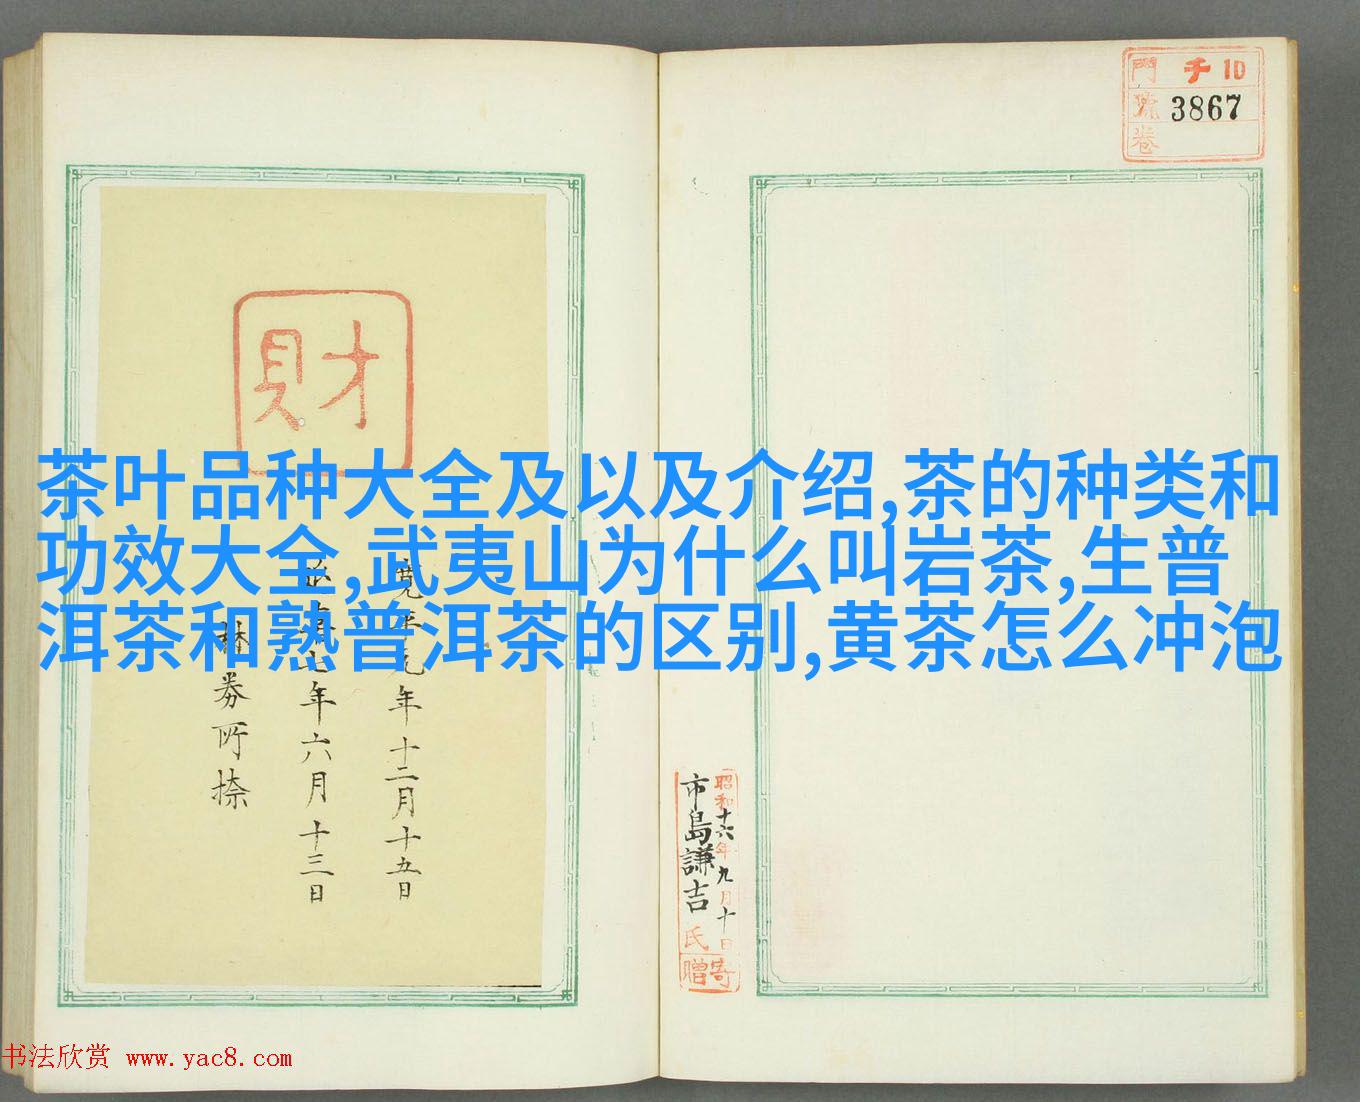 門 千10
號 3867
卷
財
茶叶品种大全及以及介绍,茶的种类和
功效大全,武夷山为什么叫岩茶,生普
洱茶和熟普洱茶的区别,黄茶怎么冲泡
年十二月十五日
年六月十三日
券所捺
昭和十六年九月十日
市島謙吉氏
寄贈
书法欣赏 www.yac8.com